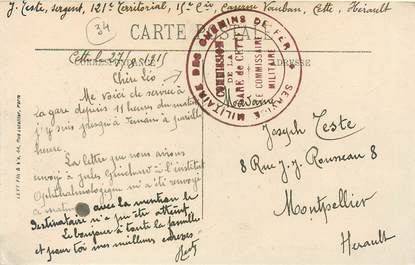 J. Teste, sergent, 121e Territorial, 15e Cie, Caserne Vauban, Cette, Hérault
34
CARTE POSTALE
CORRESPONDANCE
ADRESSE
Cette le 27/8 1915
Chère Léo
Me voici de service à
la gare depuis 11 heures du matin
j'y suis jusqu'à demain à pareille
heure.
La lettre que nous avions
envoyé à Jules à l'institut
Ophtalmologique m'a été renvoyé
avec la mention le
destinataire n'a pu être atteint.
Le bonjour à toute la famille
et pour toi mes meilleures caresses
SERVICE MILITAIRE DES CHEMINS DE FER
COMMISSION
DE LA
GARE de CETTE
LE COMMISSAIRE
MILITAIRE
Madame
Joseph Teste
8 Rue J.J. Rousseau 8
Montpellier
Herault
LEVY FILS & Cie, 44, Rue Letellier, PARIS